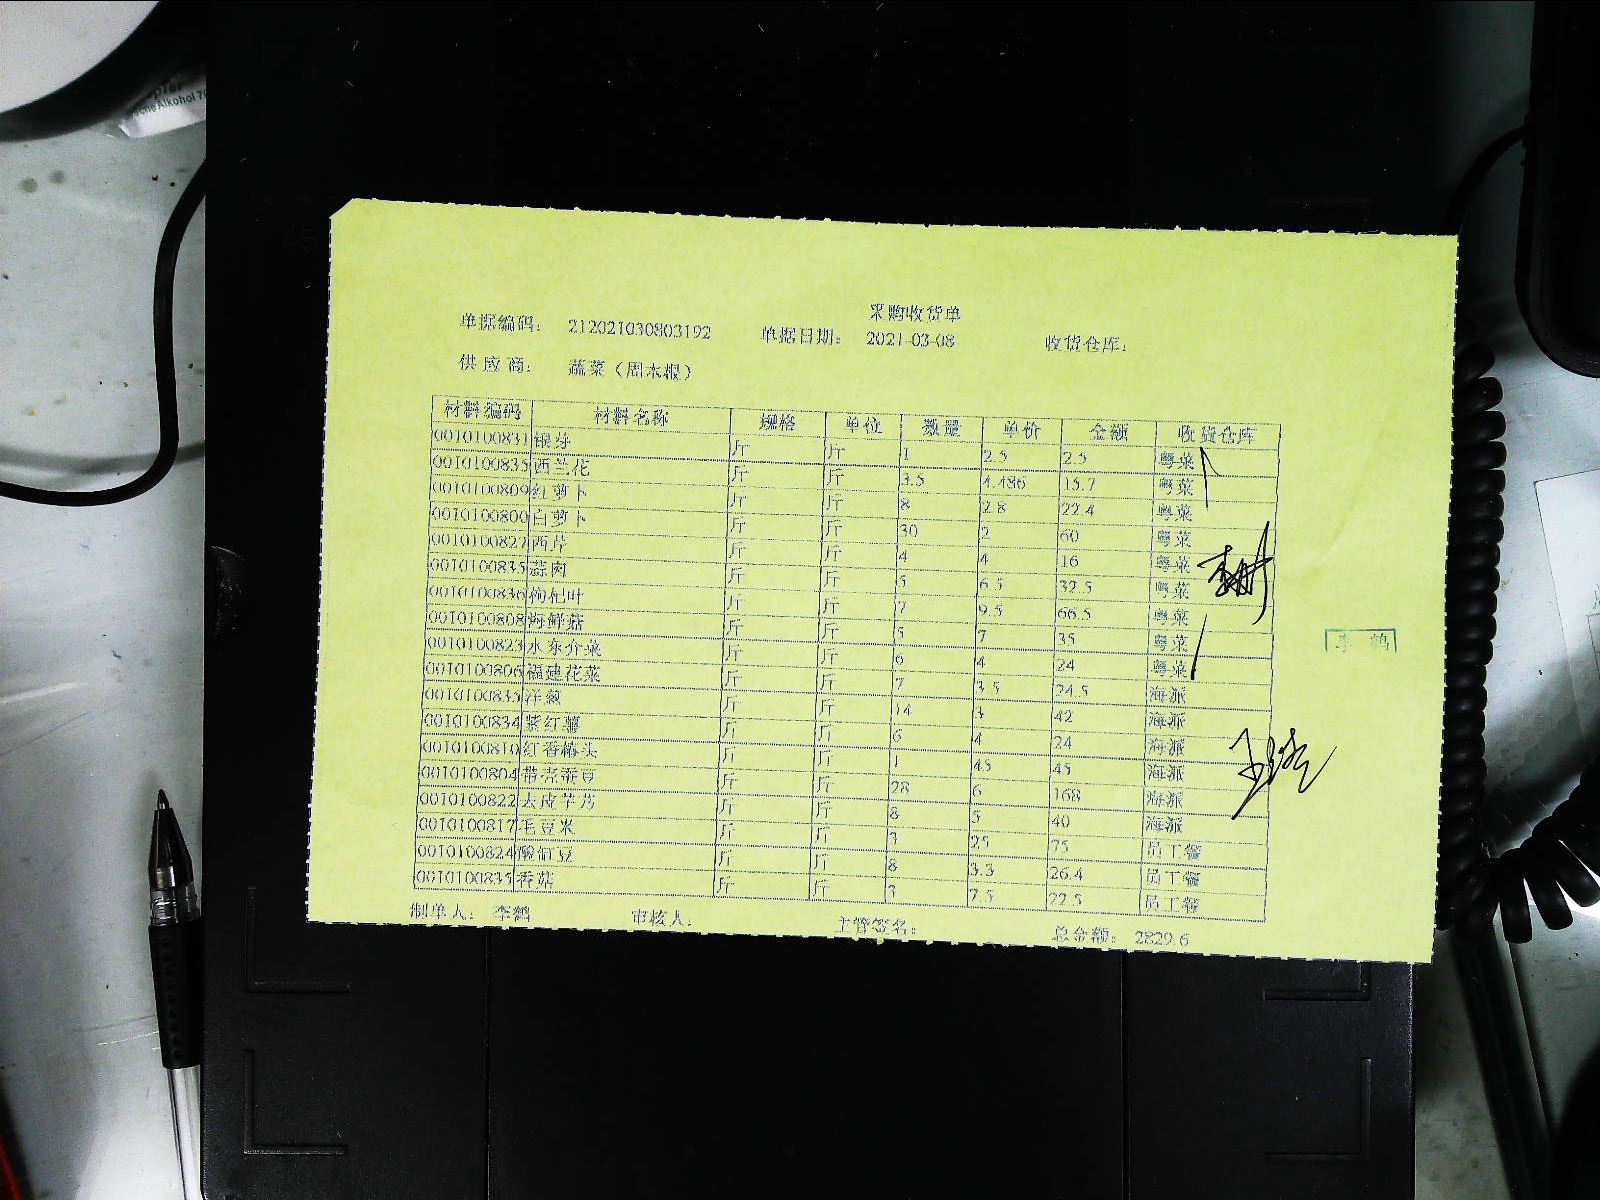 采购收货单
单据编码: 212021030803192 单据日期: 2021-03-08 收货仓库:
供应商: 蔬菜（周本根）
材料编码 材料名称 规格 单位 数量 单价 金额 收货仓库
0010100831 银芽 斤 斤 1 2.5 2.5 粤菜
0010100835 西兰花 斤 斤 3.5 4.486 15.7 粤菜
0010100809 红萝卜 斤 斤 8 2.8 22.4 粤菜
0010100800 白萝卜 斤 斤 30 2 60 粤菜
0010100827 西芹 斤 斤 4 4 16 粤菜
0010100835 蒜肉 斤 斤 5 6.5 32.5 粤菜
0010100836 枸杞叶 斤 斤 7 9.5 66.5 粤菜
0010100808 海鲜菇 斤 斤 5 7 35 粤菜
0010100823 水东介菜 斤 斤 6 4 24 粤菜
0010100806 福建花菜 斤 斤 7 3.5 24.5 海派
0010100835 洋葱 斤 斤 14 3 42 海派
0010100834 紫红薯 斤 斤 6 4 24 海派
0010100810 红香椿头 斤 斤 1 45 45 海派
0010100804 带壳蚕豆 斤 斤 28 6 168 海派
0010100822 去皮芋艿 斤 斤 8 5 40 海派
0010100817 毛豆米 斤 斤 3 25 75 员工餐
0010100824 酸豇豆 斤 斤 8 3.3 26.4 员工餐
0010100835 香菇 斤 斤 3 7.5 22.5 员工餐
李鹤
制单人: 李鹤 审核人: 主管签名: 总金额: 2829.6